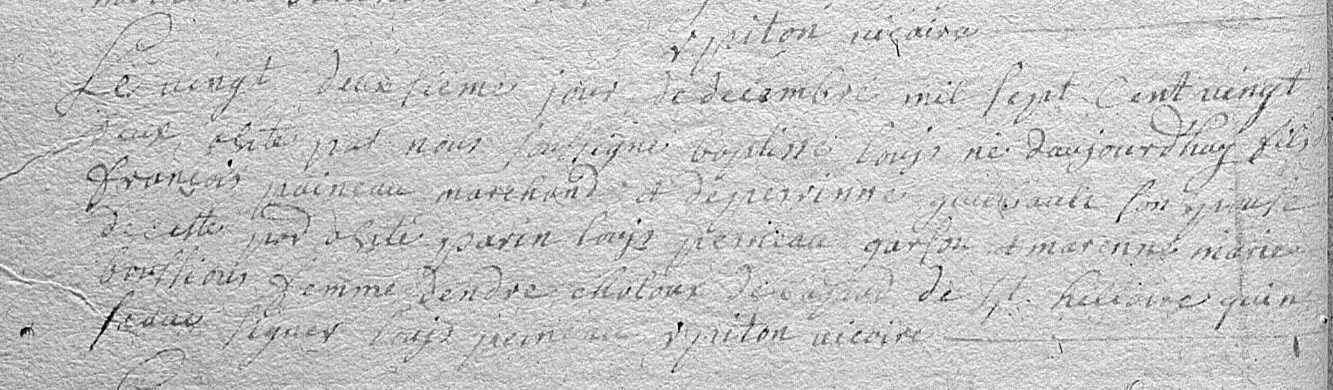 piton vicaire
Le vingt deuxsieme jour de decembre mil sept Cent vingt
deux, a été par nous soussigné baptisé louis né daujourdhuy fils
françois paineau marchand et deperrinne son epouse
de cette par a été parin louis peineau garson et marenne marie
femme dendre de de St. hillaire qui n
signer louis peineau piton vicaire